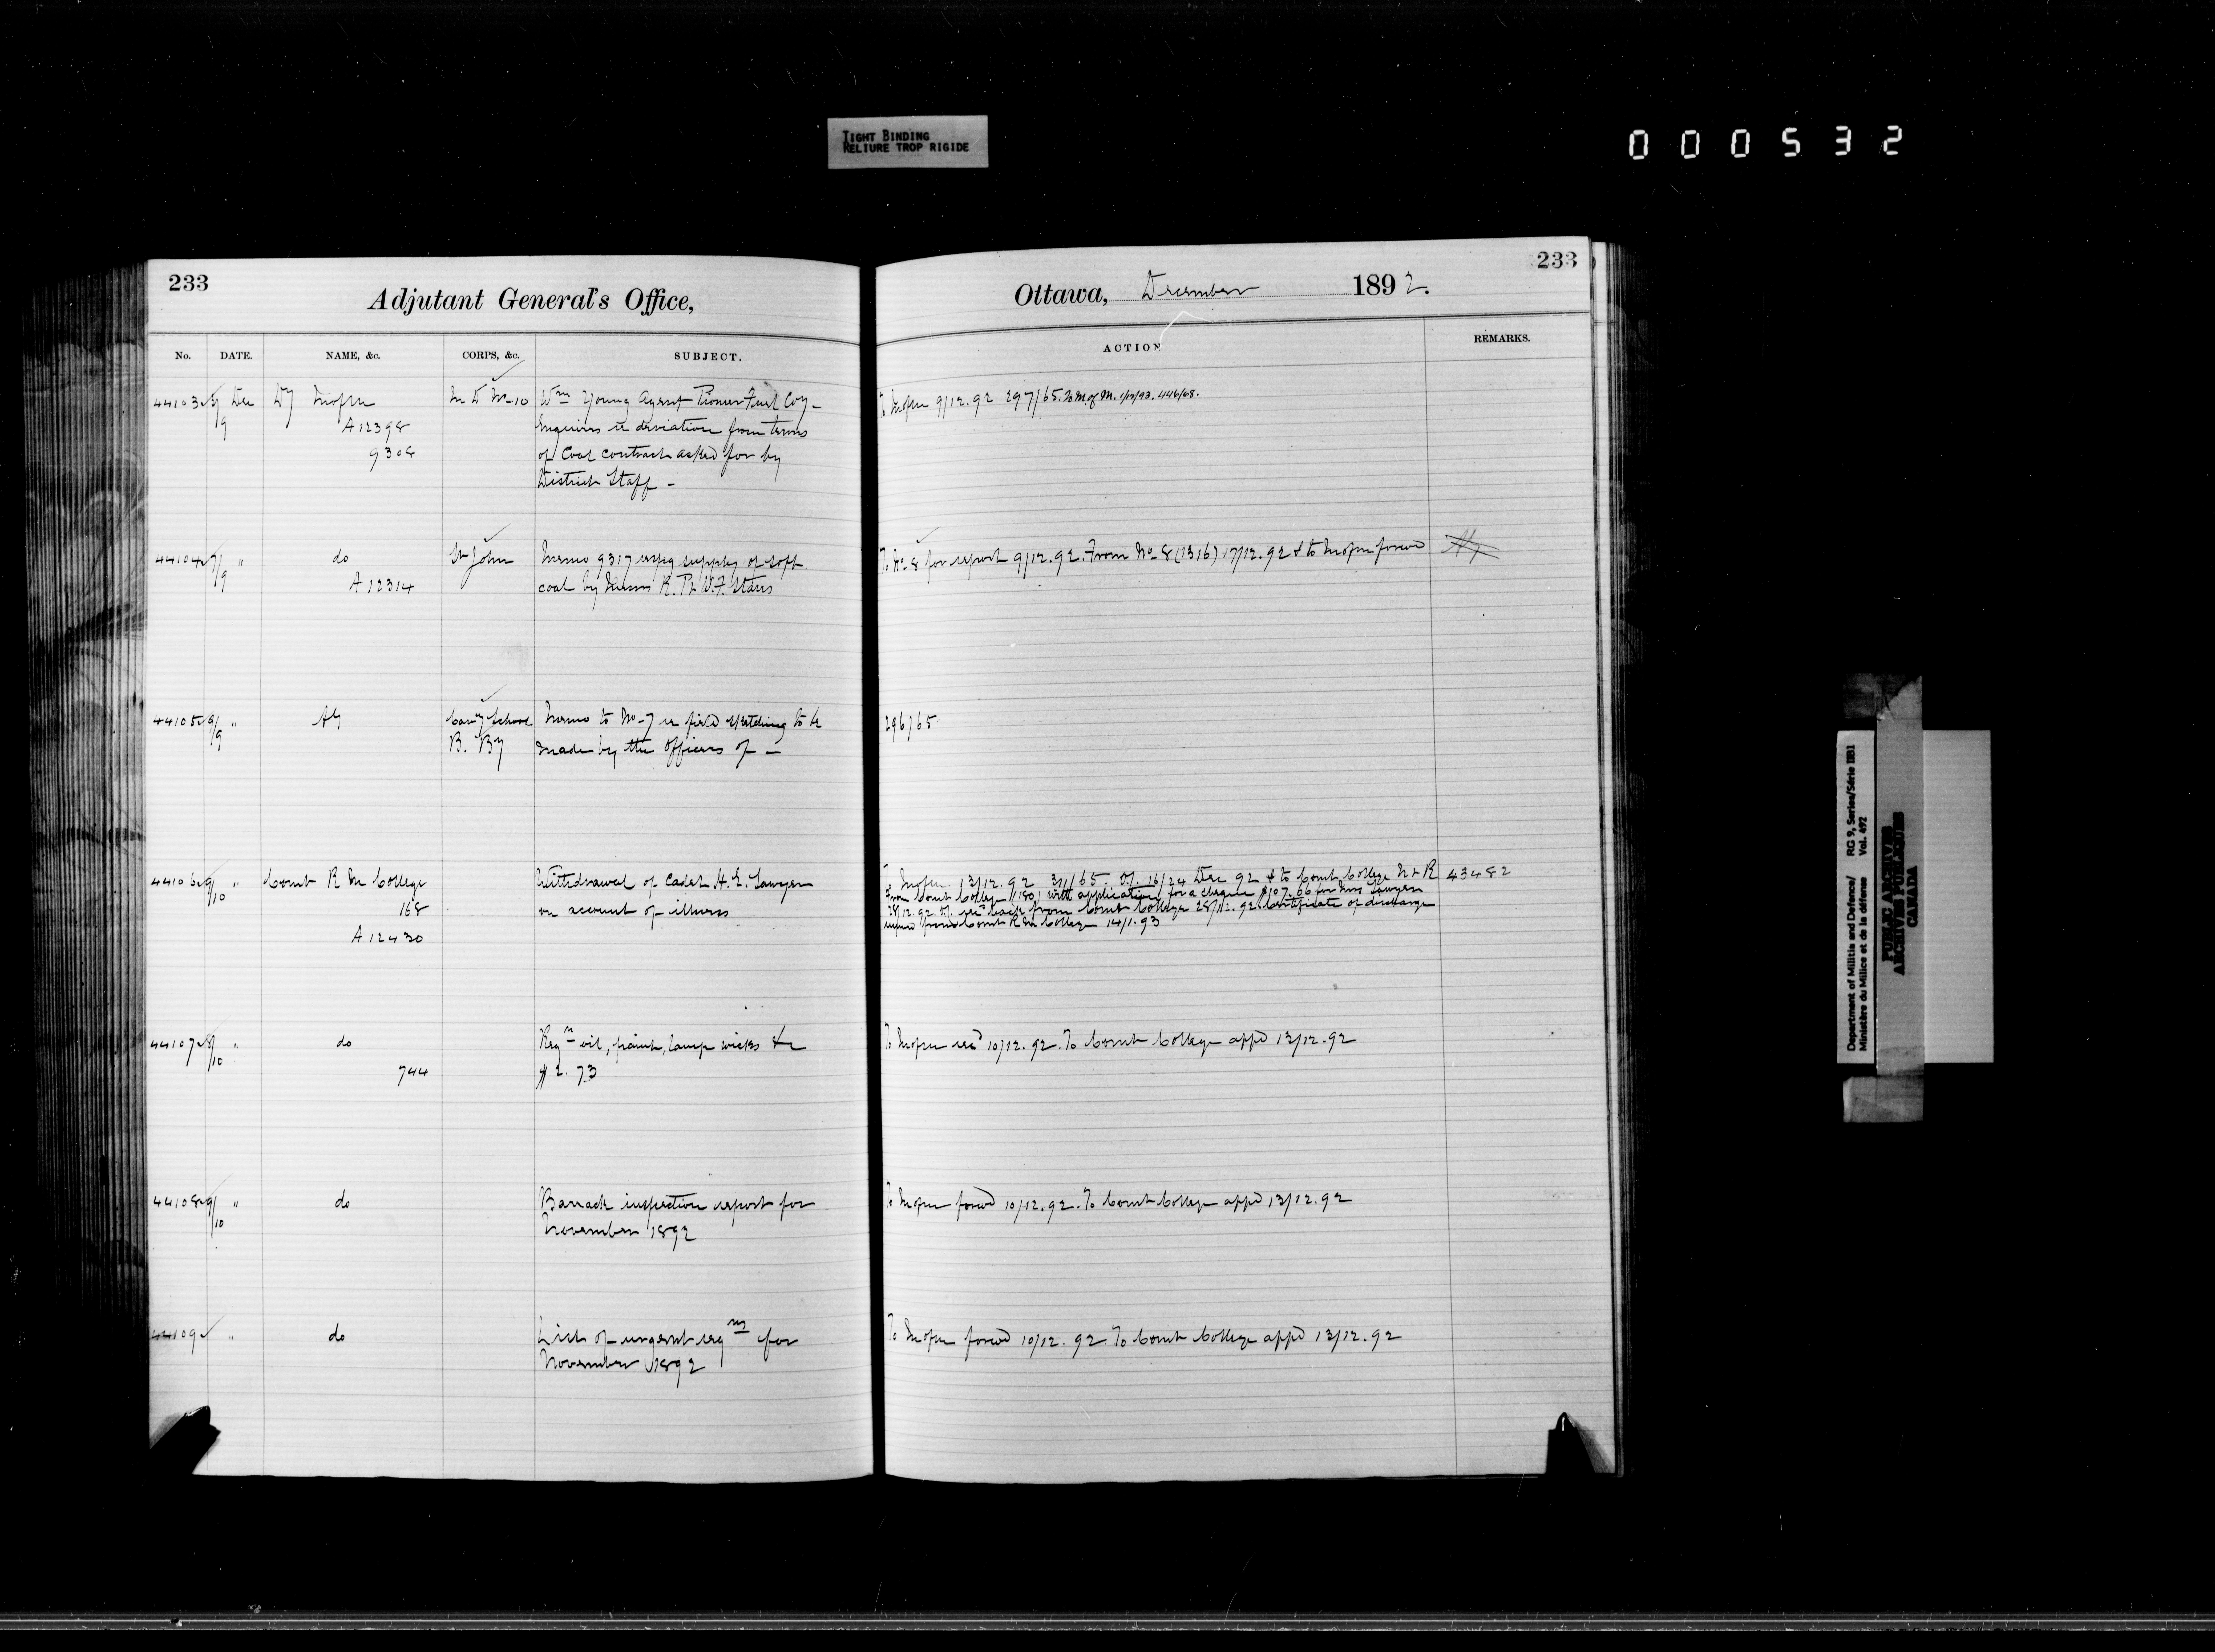 TIGHT BINDING
RELIURE TROP RIGIDE
000532
233
Adjutant General's Office,
No. DATE. NAME, &c. CORPS, &c. SUBJECT.
44103 8/9 Dec Dy M of M D No 10 Wm Young Agent Pioneer Fuel Coy -
A12398 Enquires re deviation from terms
9308 of Coal contract asked for by
District Staff -
44104 7/9 " do St John Memo 9317 respg supply of soft
A12314 coal by Messrs R. P. & W. F. Starr
44105 9/9 " AG Cavy School Memo to No 7 re field sketching to be
B. By made by the officers of -
44106 9/10 " Comt R M College Withdrawal of Cadet H. E. Sawyer
168 on account of illness
A12430
44107 8/10 " do Reqn oil, paint, lamp wicks &c
744 $2.73
44108 9/10 " do Barrack inspection report for
November 1892
44109 " do List of urgent reqns for
November 1892
233
Ottawa, December 1892.
ACTION REMARKS.
To 9/12.92 297/65. To M. of M.
To No 8 for report 9/12.92. From No 8 (1316) 17/12.92 & to forwd
296/65
To 13/12.92 311/65. 16/24 Dec 92 & to Comt College N & R 43482
From Comt College (180) with application for a cheque $107.66 for Mrs Sawyer
28/12.92. back from Comt College 28/12.92. Certificate of discharge
from Comt R M College 14/1.93
To recd 10/12.92. To Comt College appd 13/12.92
To forwd 10/12.92. To Comt College appd 13/12.92
To forwd 10/12.92 To Comt College appd 13/12.92
Department of Militia and Defence/ RG 9, Series/Série IIB1
Ministère du Milice et de la défense Vol. 492
PUBLIC ARCHIVES
ARCHIVES PUBLIQUES
CANADA